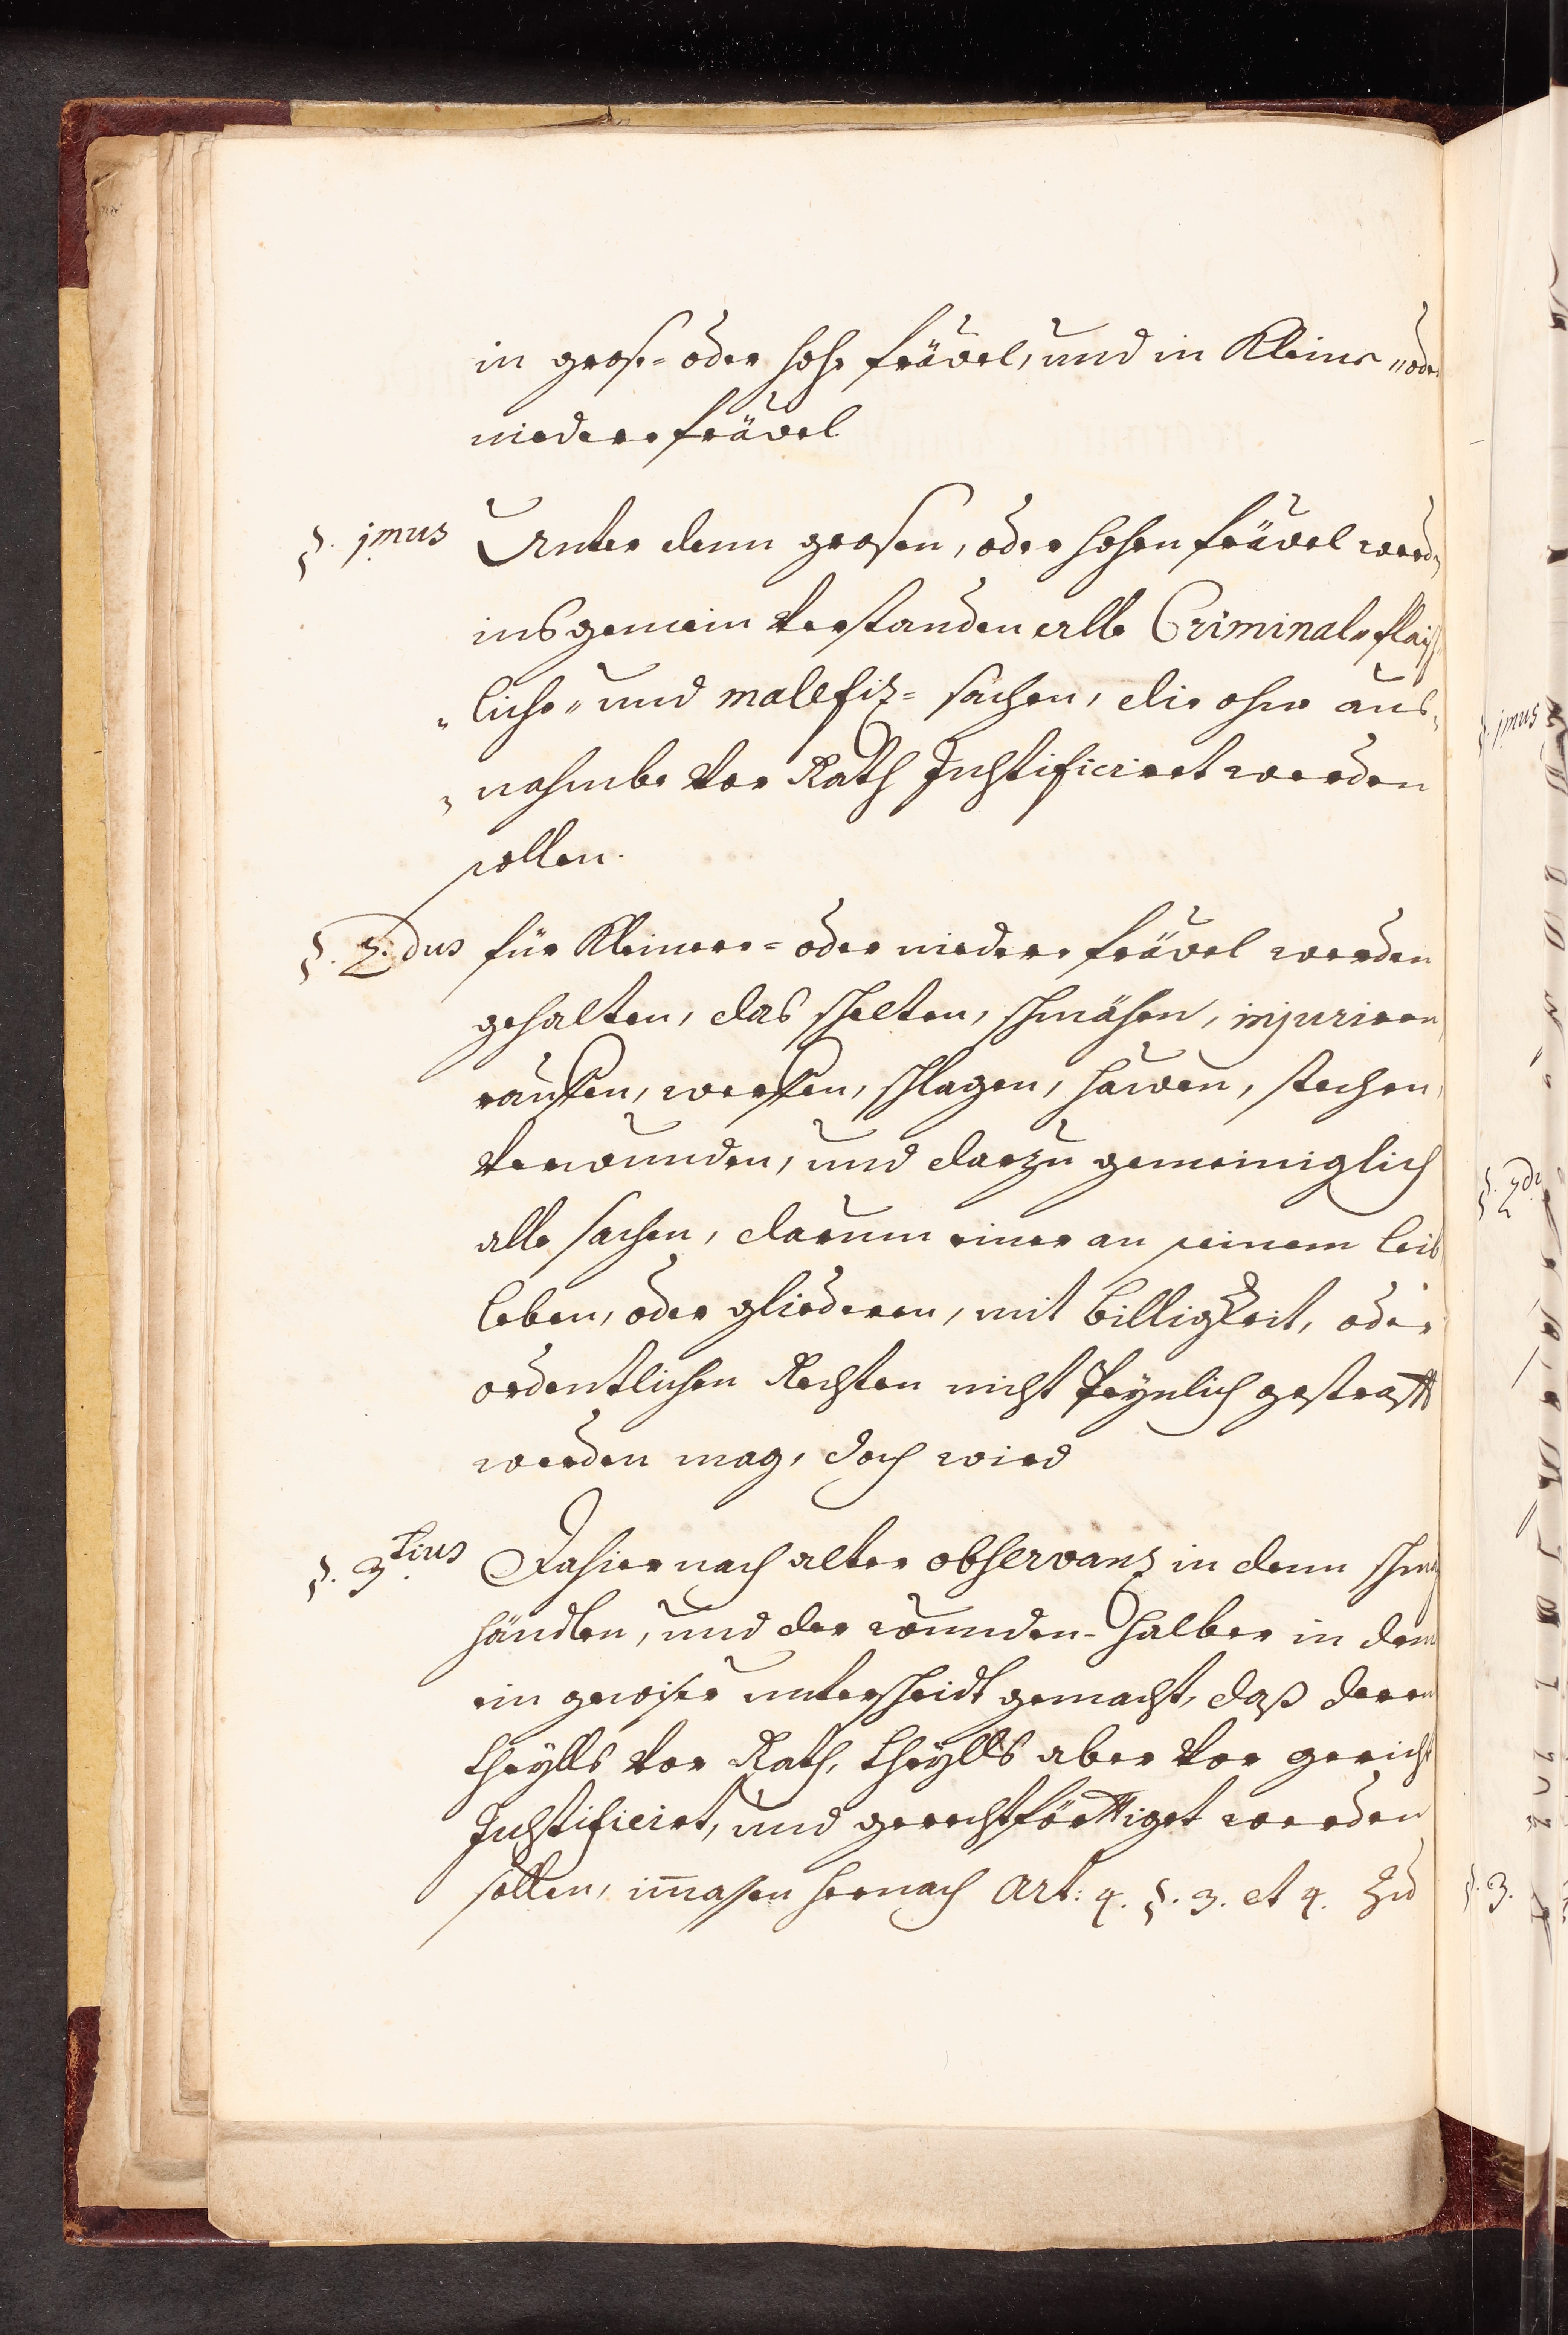 in grose= oder hohe frävel, und in Kleine „oder
niedere frävel
§. 1mus Unter denn grosen, oder hohen frävel werden
insgemein verstanden alle Criminal„ flaisch
„liche„ und malefiz= sachen, die ohne aus„
„nahmbe vor Rath Justificiret werden
sollen.
§. 2.dus für Kleinere= oder niedere frävel werden
gehalten, das schelten, schmähen, injuriren,
rauffen, werffen, schlagen, hawen, stechen,
verwunden, und darzu gemeiniglich
alle sachen, darum einer an seinem leib
leben, oder gliederen, mit billigkeit, oder
ordentlichen Rechten nicht Peynlich gestrafft
werden mag, doch wird
§. 3tius Dahier nach alter observanz in denn schmach
händlen, und der wunden-halber in dem
ein gewiser unterscheidt gemacht, daß deren
theylls vor Rath, theylls aber vor gericht
Justificirt, und gerechtförttiget werden
sollen, im̅asen hernach Art: 4. §. 3. et 4. zu
§. 1mus
§. 2du
§. 3.